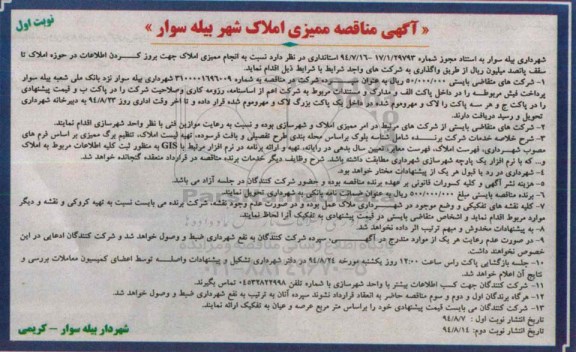 نوبت اول
« آگهی مناقصه ممیزی املاک شهر بیله سوار »
شهرداری بیله سوار به استناد مجوز شماره ۱۷/۱/۲۹۷۹۳ -۹۴/۷/۱۶ استانداری در نظر دارد نسبت به انجام ممیزی املاک جهت بروز کردن اطلاعات در حوزه املاک تا
سقف پانصد میلیون ریال از طریق واگذاری به شرکت های واجد شرایط با شرایط ذیل اقدام نماید.
۱- شرکت های متقاضی بایستی ۵۰/۰۰۰/۰۰۰ ریال به عنوان سپرده شرکت در مناقصه به شماره ۳۱۰۰۰۰۱۶۹۶۰۰۹ شهرداری بیله سوار نزد بانک ملی شعبه بیله سوار
پرداخت فیش مربوطه را در داخل پاکت الف و مدارک و مستندات مربوط به شرکت اعم از اساسنامه، رزومه کاری وصلاحیت شرکت را در پاکت ب و قیمت پیشنهادی
را در پاکت ج و هر سه پاکت را لاک و مهروموم شده در داخل یک پاکت بزرگ لاک و مهروموم شده قرار داده و تا آخر وقت اداری روز ۹۴/۸/۲۳ به دبیرخانه شهرداری
تحویل و رسید دریافت دارند.
۲- شرکت های متقاضی بایستی از شرکت های مرتبط در امر ممیزی املاک و شهرسازی بوده و نسبت به رعایت موازین فنی با نظر واحد شهرسازی اقدام نمایند.
۳- شرح خلاصه خدمات شرکت برنده شامل شناسه بلوک براساس محله بندی طرح تفصیلی و بافت فرسوده، تهیه لیست املاک، تنظیم برگ ممیزی بر اساس فرم های
مصوب شهرداری، فهرست املاک، فهرست معابر، تعیین سال بدهی در رایانه، تهیه و ارائه برنامه در نرم افزار مرتبط با GIS به منظور ثبت کلیه اطلاعات مربوط به املاک
و... که با نرم افزار یک پارچه شهرسازی شهرداری مطابقت داشته باشد. شرح وظایف دیگر خدمات برنده مناقصه در قرارداد منعقده گنجانده خواهد شد.
۴- شهرداری در رد یا قبول هر یک از پیشنهادات مختار خواهد بود.
۵- هزینه نشر آگهی و کلیه کسورات قانونی بر عهده برنده مناقصه بوده و حضور شرکت کنندگان در جلسه آزاد می باشد.
۶- برنده مناقصه بایستی مبلغ ۵۰۰/۰۰۰/۰۰۰ ریال به عنوان ضمانت نامه بانکی به شهرداری تحویل نمایند.
۷- کلیه نقشه های تفکیکی و وضع موجود در شهرداری ملاک عمل بوده و در صورت عدم وجود نقشه، شرکت برنده می بایست نسبت به تهیه کروکی و نقشه و دیگر
موارد مربوط اقدام نماید و اشخاص متقاضی بایستی در قیمت پیشنهادی به تفکیک آنرا لحاظ نمایند.
۸- به پیشنهادات مخدوش و مبهم ترتیب اثر داده نخواهد شد.
۹- در صورت عدم رعایت هر یک از موارد مندرج در آگهی، سپرده شرکت کنندگان به نفع شهرداری ضبط و وصول خواهد شد و شرکت کنندگان ادعایی در این
خصوص نخواهند داشت.
۱۰- جلسه بازگشایی پاکت راس ساعت ۱۲:۰۰ روز یکشنبه مورخه ۹۴/۸/۲۴ در دفتر شهرداری تشکیل و پیشنهادات واصله توسط اعضای کمیسیون معاملات بررسی و
نتایج آن اعلام خواهد شد.
۱۱- شرکت کنندگان جهت کسب اطلاعات بیشتر با واحد شهرسازی با شماره تلفن ۰۴۵۳۲۸۲۲۹۹۸ تماس بگیرند.
۱۲- هرگاه برندگان اول و دوم و سوم مناقصه حاضر به انعقاد قرارداد نشوند سپرده آنان به ترتیب به نفع شهرداری ضبط و وصول خواهد شد.
۱۳- شرکت کنندگان می بایست قیمت پیشنهادی خود را براساس متر مربع عرصه و عیان به تفکیک ارائه نمایند.
تاریخ انتشار نوبت اول : ۹۴/۸/۷
تاریخ انتشار نوبت دوم: ۹۴/۸/۱۴
شهردار بیله سوار – کریمی
۰۲۱-۸۸۳۴۹۶۷۰-۵